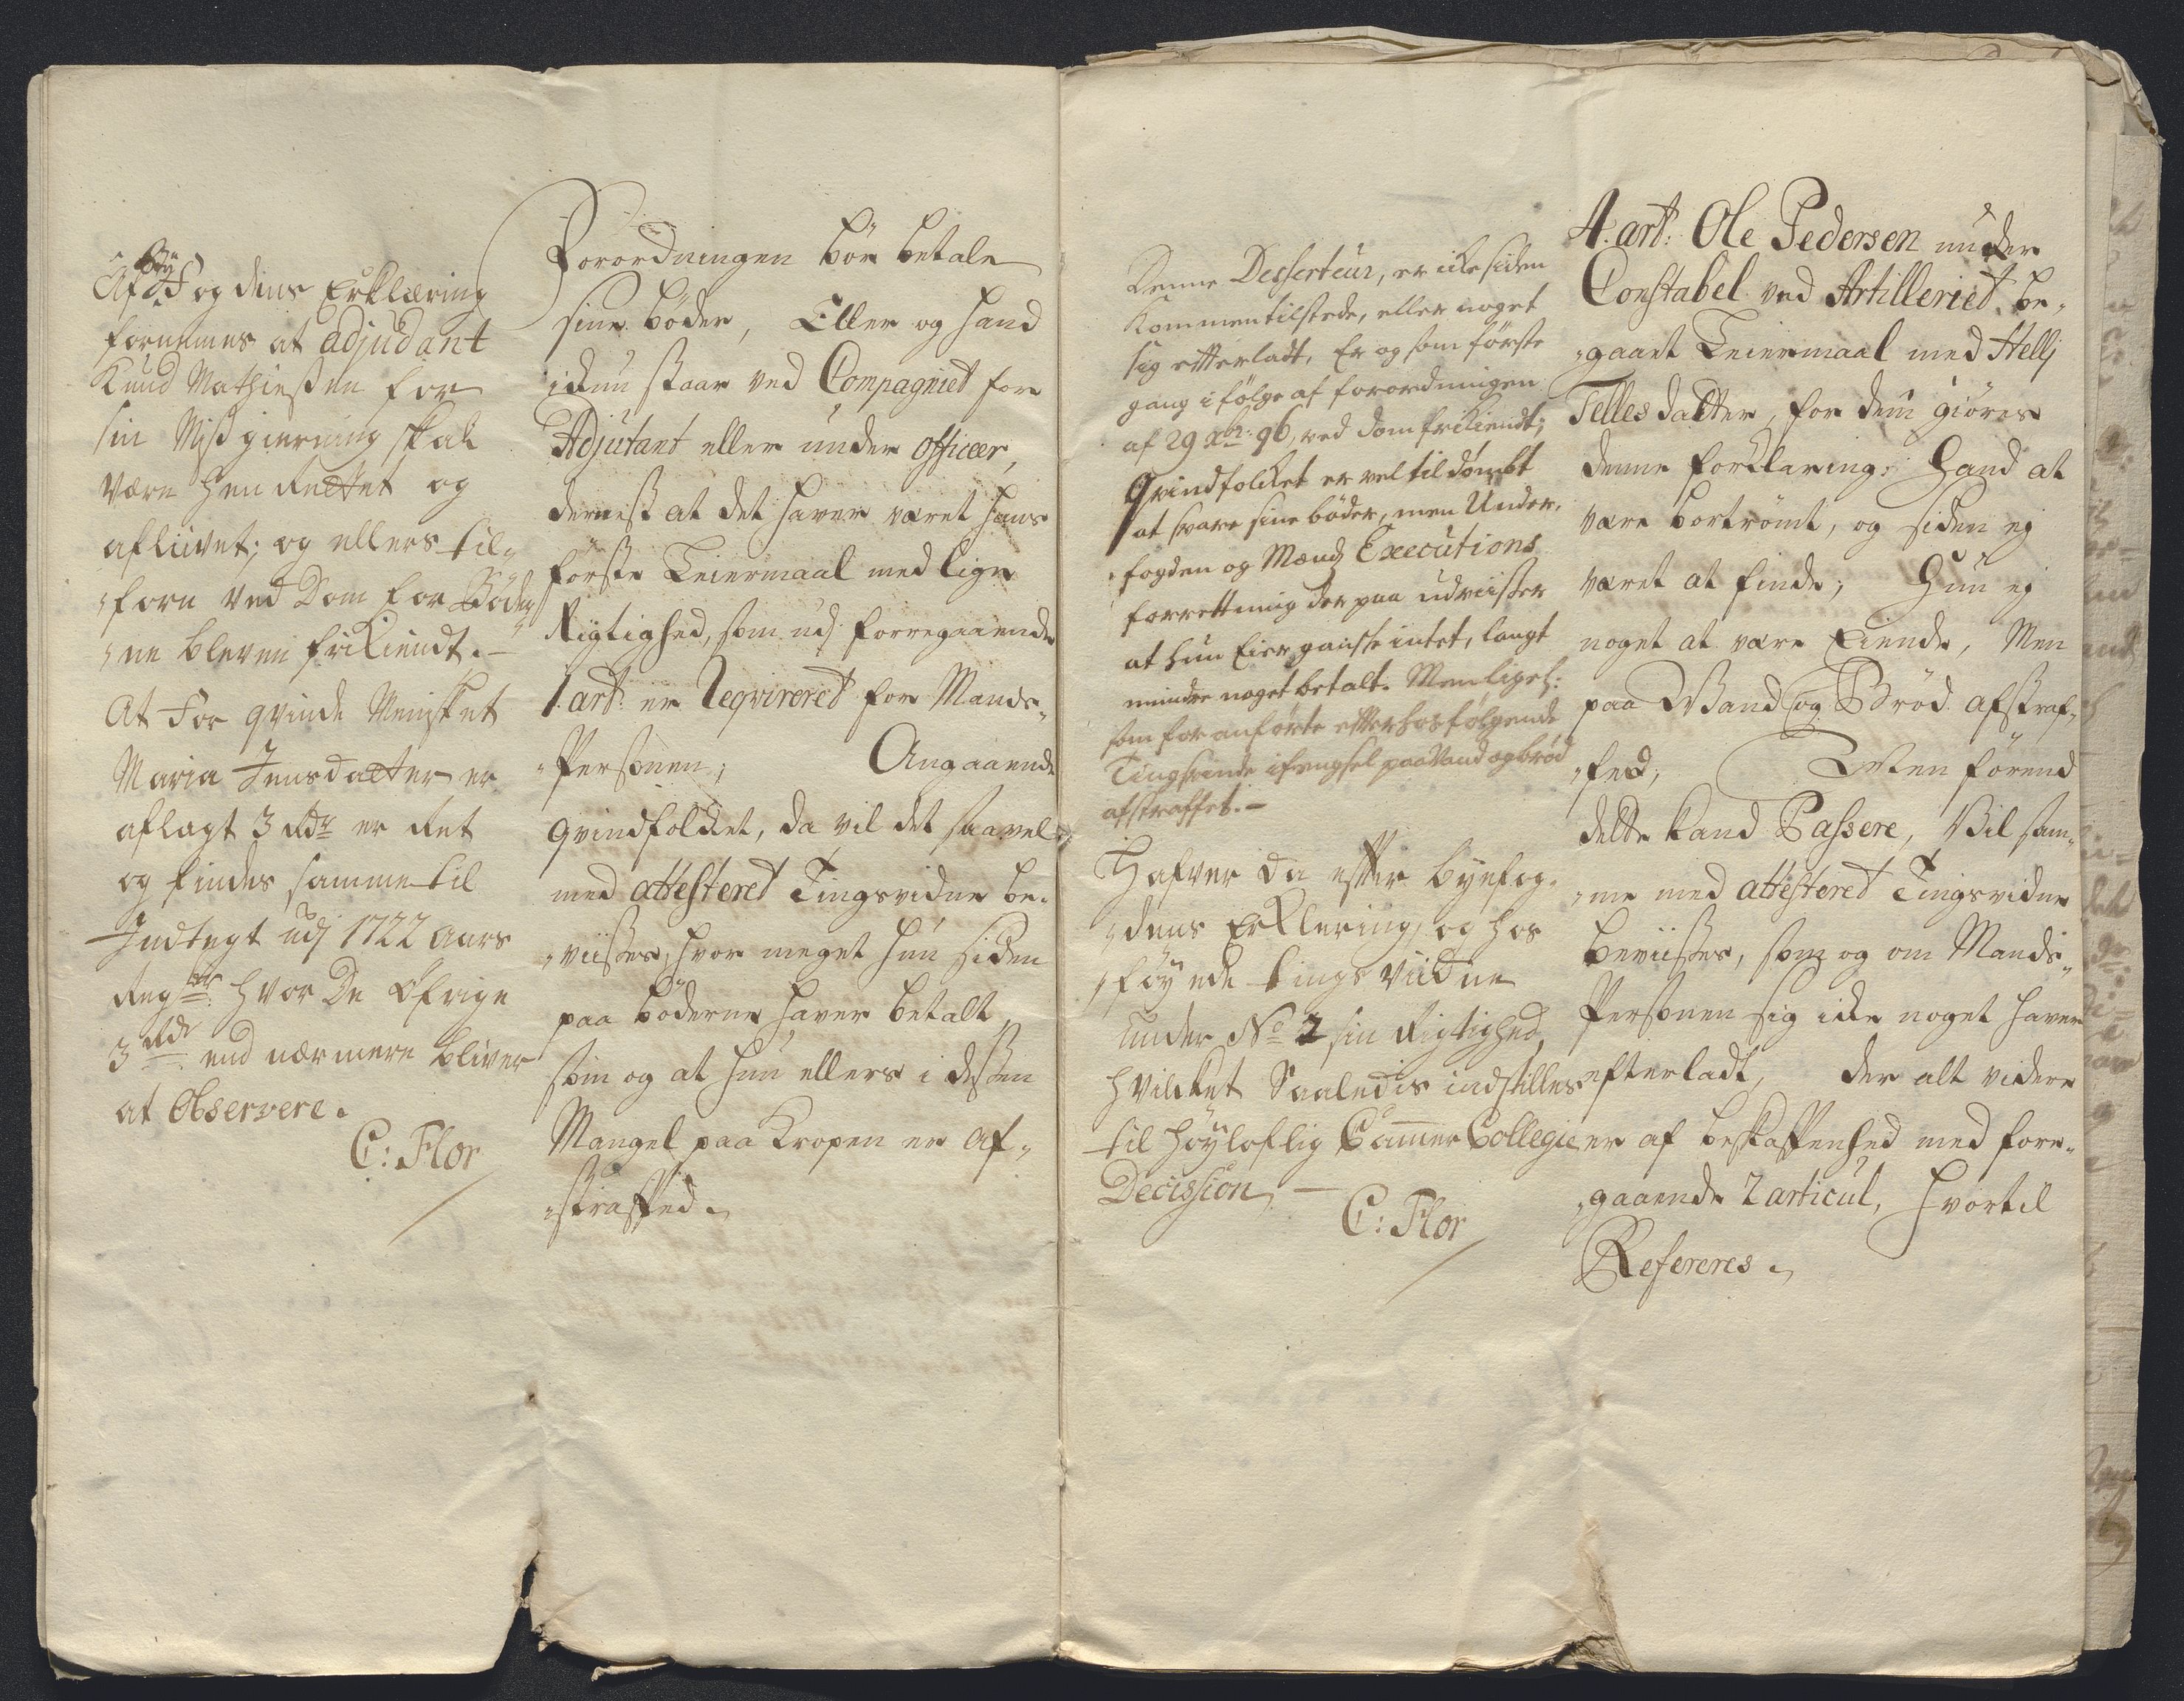 Af Byf og dens Erklæring
fornemmes at adjudant
Knud Mathiesen for
sin Miss gierning skal
være hen Rettet og
aflivet; og ellers til„
„forn ved Dom for Bøder„
„ne bleven frikiendt.–
At For qvinde Mennisket
Maria Jensdatter er
aflagt 3 Rdr er Ret
og findes samme til
Indtegt udj 1722 Aars
Regsk: hvor De Øfrige
3 Rdr end nærmere bliver
at Observere.
C: Flor
Forordningen bør betale
sine bøder, Eller og Hand
iddun staar ved Compagniet for
Adjutant eller under officeer,
dernest at det haver været hans
første Leiermaal med lige
Rigtighed, som udj forregaaende
1. art: er Reqvireret for Mands„
„Personen; Angaaende
qvindfolcket, da vil det saavel
med attesteret Tingsvidne be„
„viises, hvor meget hun siden
paa bøderne haver betalt
som og at hun ellers i dessen
Mangel paa Kropen er af„
„straffed.
Denne Desserteur, er icke siden
kommen tilstede, eller noget
sig efterladt, Er og som første
gang i følge af forordningen
af 29 xbr: 96, ved dom frikiendt;
Qvindfolcket er vel tildømbt
at svare sine bøder, men Under„
fogden og Mænds Executions
forrettning der paa udviisser
at hun Eier gandske intet, langt
mindre noget betalt. Men ligel:
som for anførte efter hosfølgende
Tingsvinde i fengsel paa Vand og brød
afstraffet.–
Hafver da efter byefog„
„dens Erklering, og hos
„føyede tings vidne
under No 2 sin Rigtighed,
hvilcket Saaledis indstilles
til høyloflig Cammer Collegie
Decission,–
C: Flor
4. art: Ole Pedersen under
Constabel ved Artilleriet, be„
„gaaet Leiermaal med Hellj
Tellesdatter, for dem giøres
denne forklaring: Hand at
være bortrømt, og siden ej
været at finde; Hun ej
noget at være Eiende, Men
paa Wand og Brød afstraf„
„fed, Men førend
dette kand Passere, Vil sam„
„me med attesteret Tingsvidne
beviises, som og om Mands„
Personen sig icke noget haver
efterladt, der alt videre
er af beskaffenhed med fore„
„gaaende 2 articul, hvortil
Refereres.